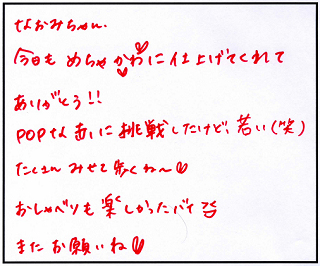 なおみちゃん.
今日も めちゃ かわ♡に 仕上げてくれて
ありがとう!!
POPな 赤に 挑戦したけど、若い(笑)
たくさん みせて 歩くね〜♡
おしゃべりも 楽しかったバイ
また お願いね♡